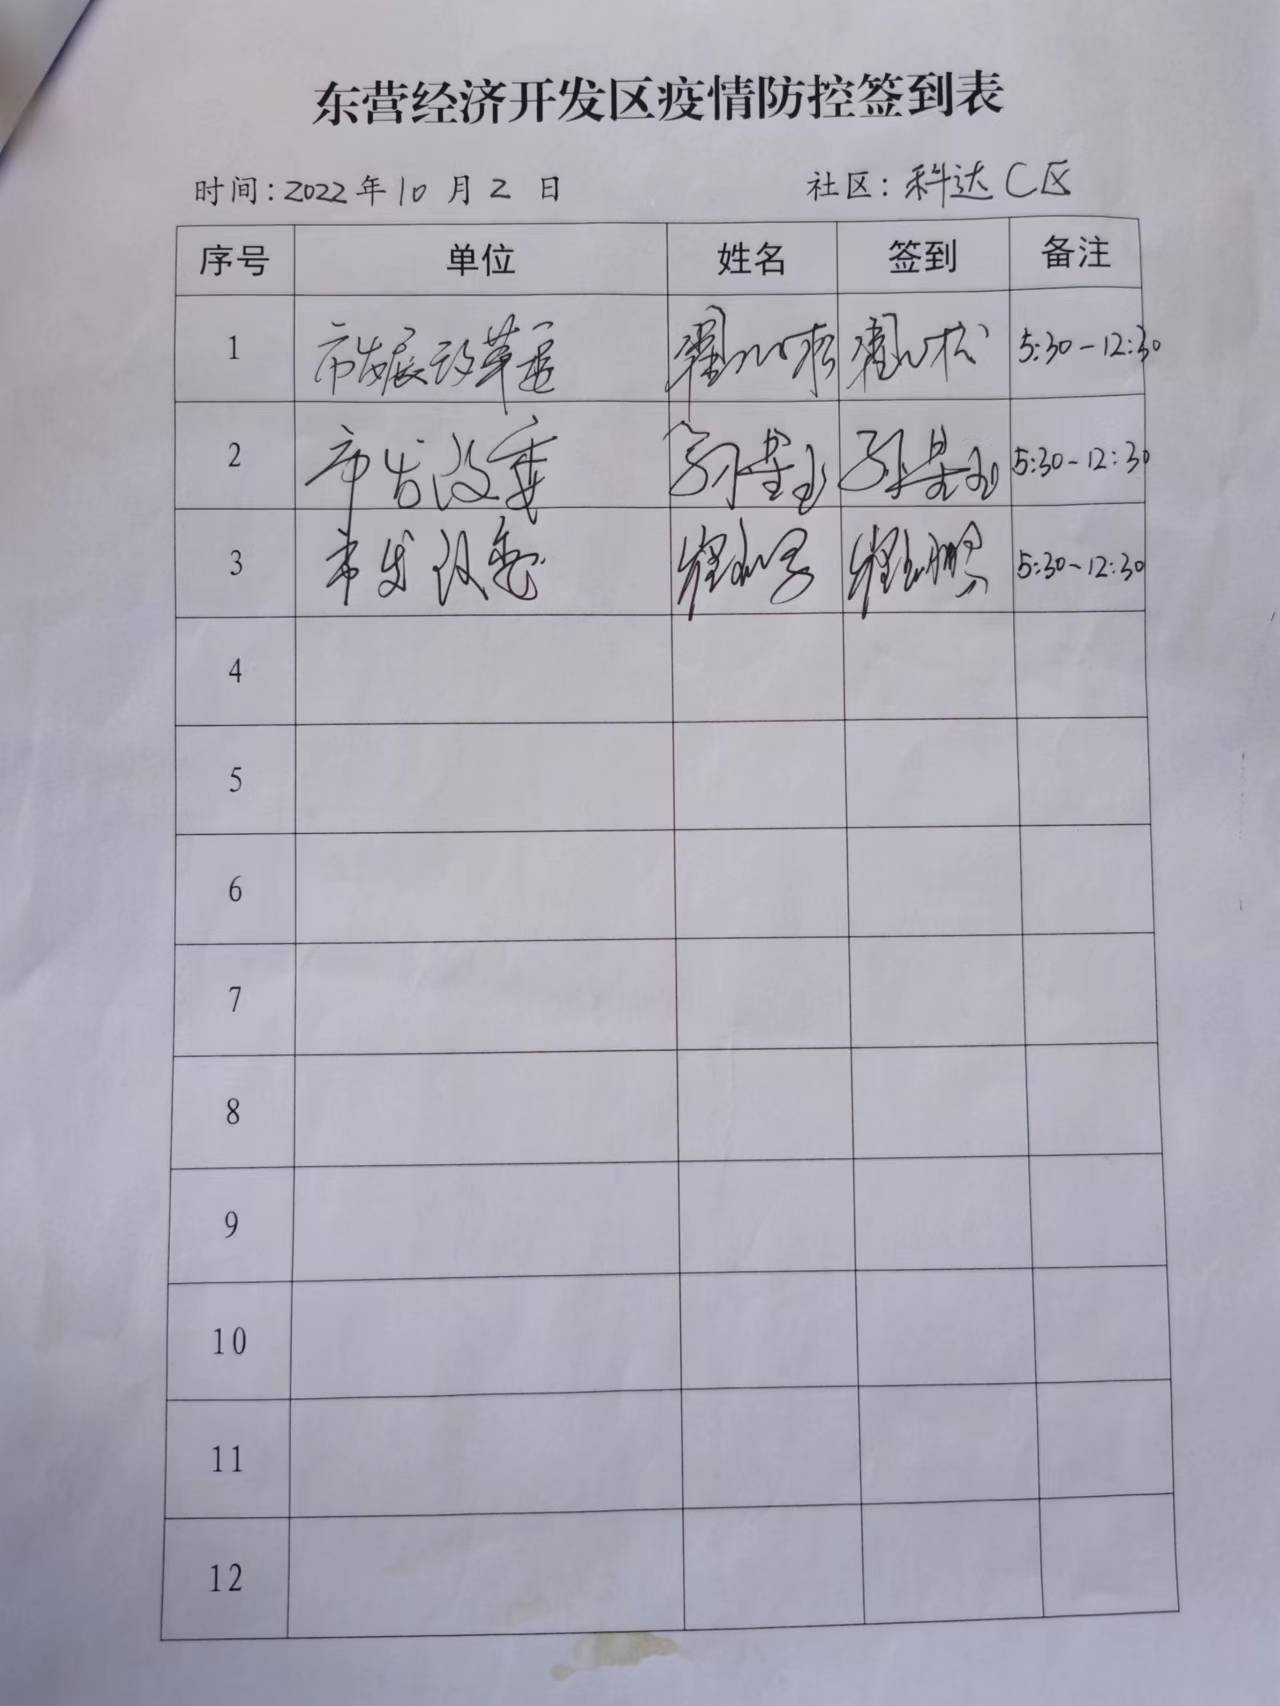 东营经济开发区疫情防控签到表
时间：2022年10月2日 社区：科达C区
序号 单位 姓名 签到 备注
1 市发展改革委 5:30-12:30
2 市发改委 5:30-12:30
3 市发改委 5:30-12:30
4
5
6
7
8
9
10
11
12